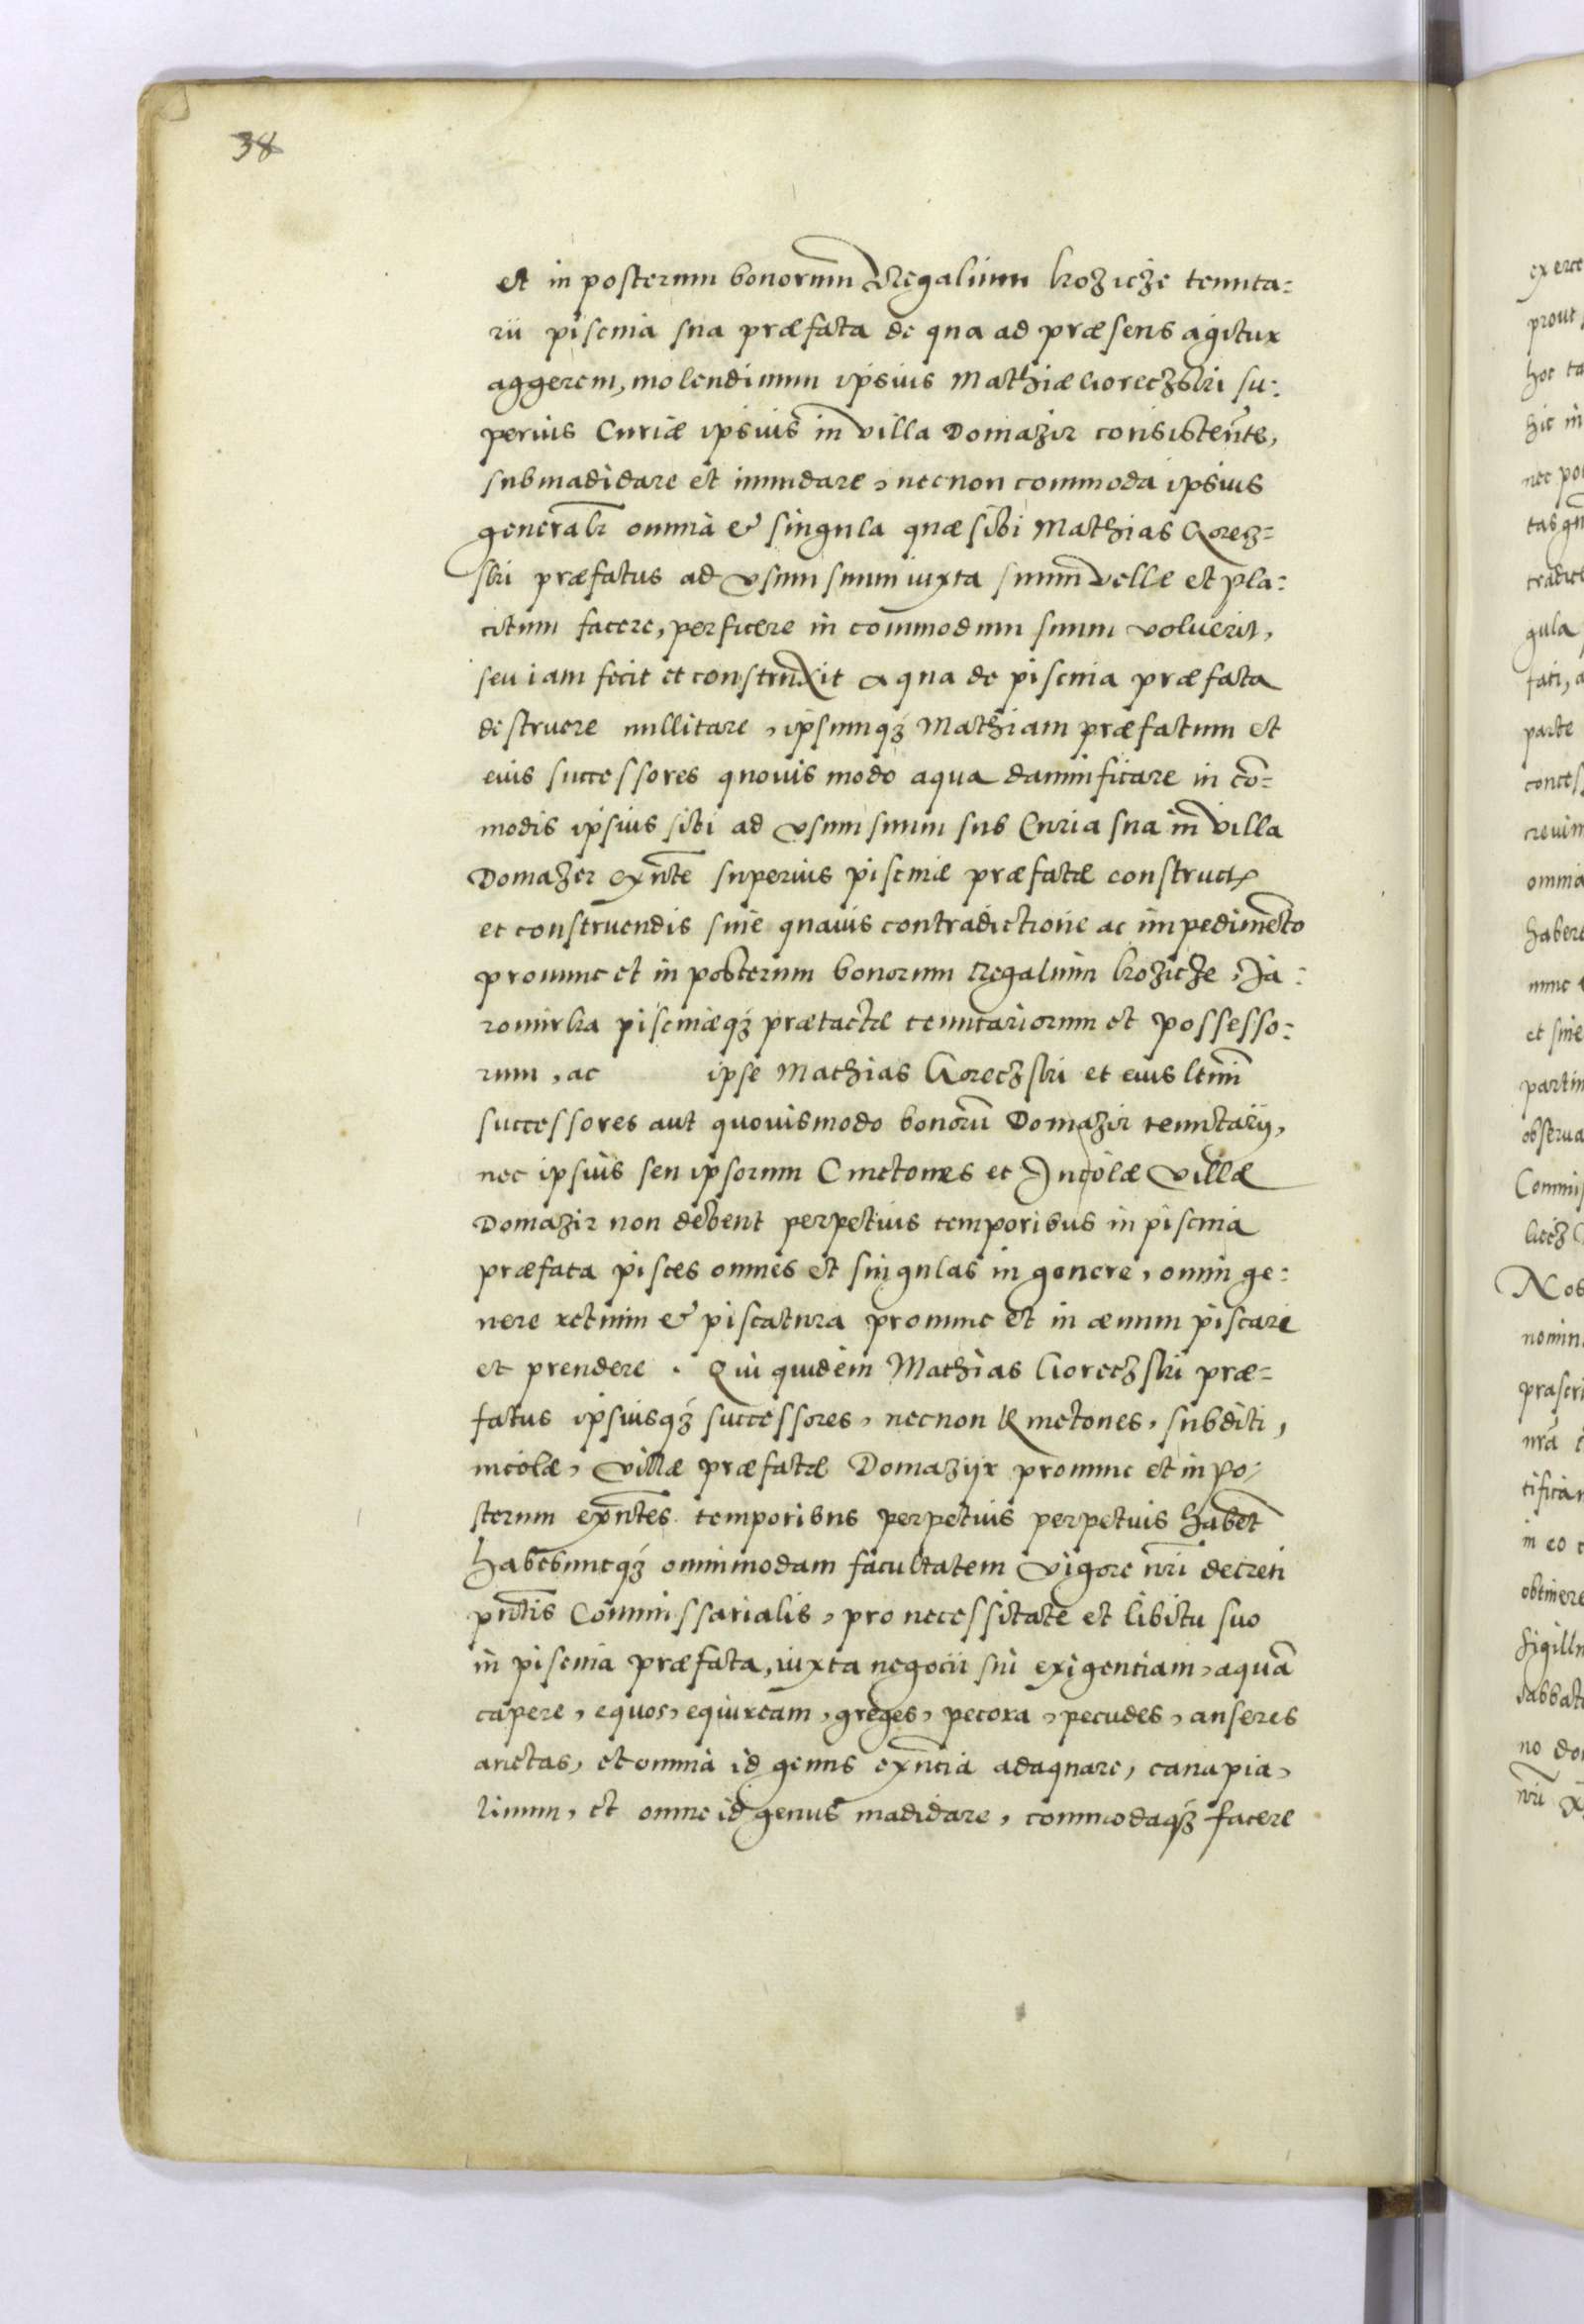 38
et in posterum bonorum Regalium kozicze tenuta:
rii piscina sua præfata de qua ad præsens agitur
aggerem, molendinum ipsius Mathiæ Goreczski su:
perius Curiæ ipsius in villa Domazir consisten̄te,
submadidare et inundare, necnon commoda ipsius
generalr̄ omnia & singula quæ sibi Mathias Gorecz=
ski præfatus ad vsum suum iuxta suum velle et pla:
citum facere, perficere in commodum suum voluerit,
seu iam fecit et construxit aqua de piscina præfata
destruere nullitare, ipsumqꝫ Mathiam præfatum et
eius successores quouis modo aqua damnificare in cō=
modis ipsius sibi ad vsum suum sub Curia sua in villa
Domazer exn̄te superius piscinæ præfatæ constructꝭ
et construendis sine quauis contradictione ac impedimēto
pronunc et in posterum bonorum Regalium kozicze, Ja:
romirka piscinæqꝫ prætactæ tenutariorum et possesso:
rum, ac ipse Mathias Goreczski et eius ltīmi
successores aut quouismodo bonorū Domazir tenutarij,
nec ipsius seu ipsorum Cmetones et Incolæ villæ
Domazir non debent perpetuis temporibus in piscina
præfata pisces omnes et singulas in genere, omni ge:
nere retium & piscatura pronunc et in æuum piscari
et prendere. Qui quidem Mathias Goreczski præ=
fatus ipsiusqꝫ successores, necnon kmetones, subditi,
incolæ, villæ præfatæ Domazijr pronunc et in po=
sterum exn̄tes temporibus perpetuis perpetuis habēt
habebuntqꝫ omnimodam facultatem vigore nr̄i decreti
pn̄tis Commissarialis, pro necessitate et libitu suo
in piscina præfata, iuxta negocii sui exigentiam, aquā
capere, equos, equiream, greges, pecora, pecudes, anseres
anetas, et omnia id genus exn̄cia adaquare, canapia,
linum, et omne id genus madidare, commodaqꝫ facere